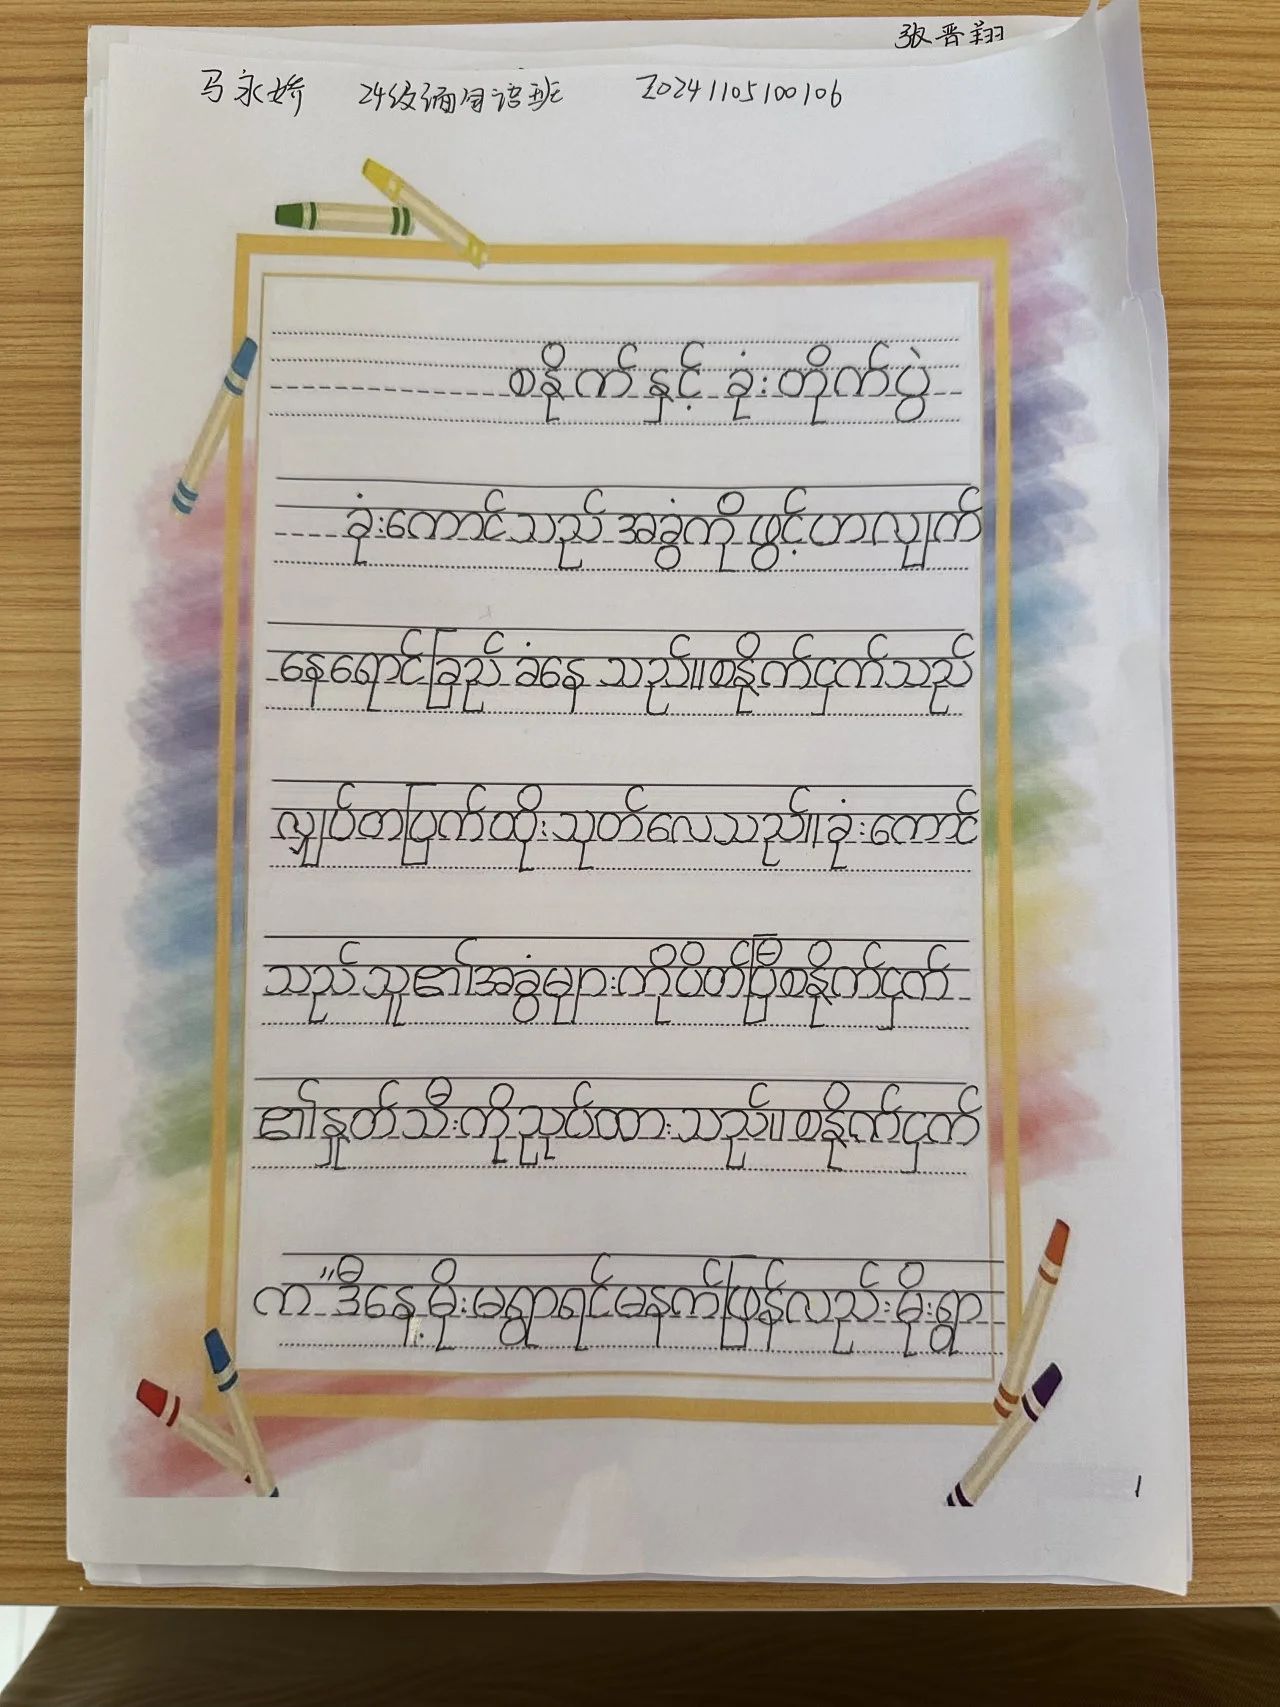 张晋翔
马永娇 24级缅甸语班 Z0241105100106
စနိုက်နှင့် ခုံးတိုက်ပွဲ
ခုံးကောင်သည် အခွံကို ဖွင့်ဟာလျှက်
နေရောင်ခြည် ခံနေ သည်။စနိုက်ငှက်သည်
လျှပ်တပြက်ထိုးသုတ်လေသည်။ခုံးကောင်
သည်သူ၏အခွံများကိုပိတ်ပြီစနိုက်ငှက်
၏နှုတ်သီးကိုညှပ်ထားသည်။စနိုက်ငှက်
က"ဒီနေ့မိုးမရွာရင်မနက်ဖြန်လည်းမိုးရွာ
1